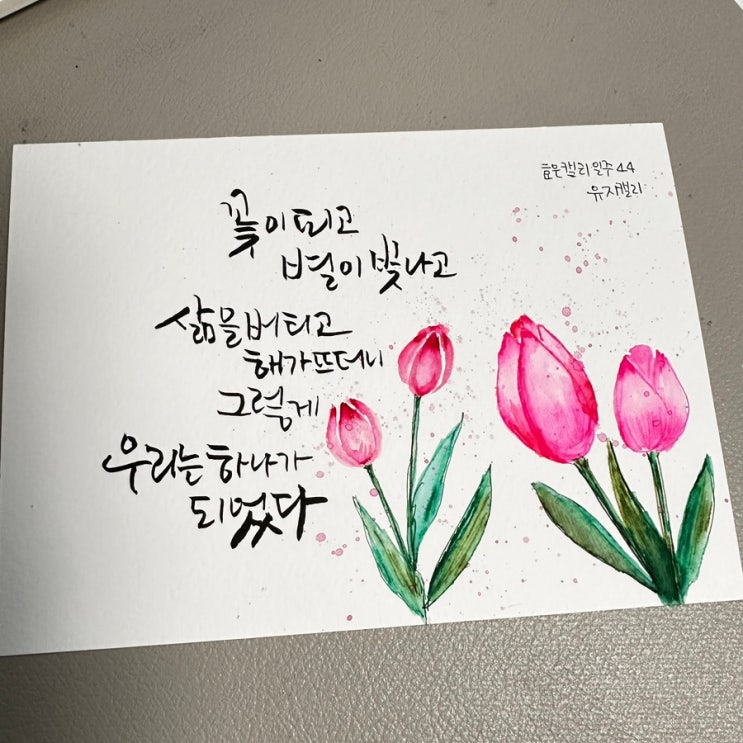 꽃이 피고
별이 빛나고
삶을 버티고
해가 뜨더니
그렇게
우리는 하나가
되었다
일주 44
유자캘리